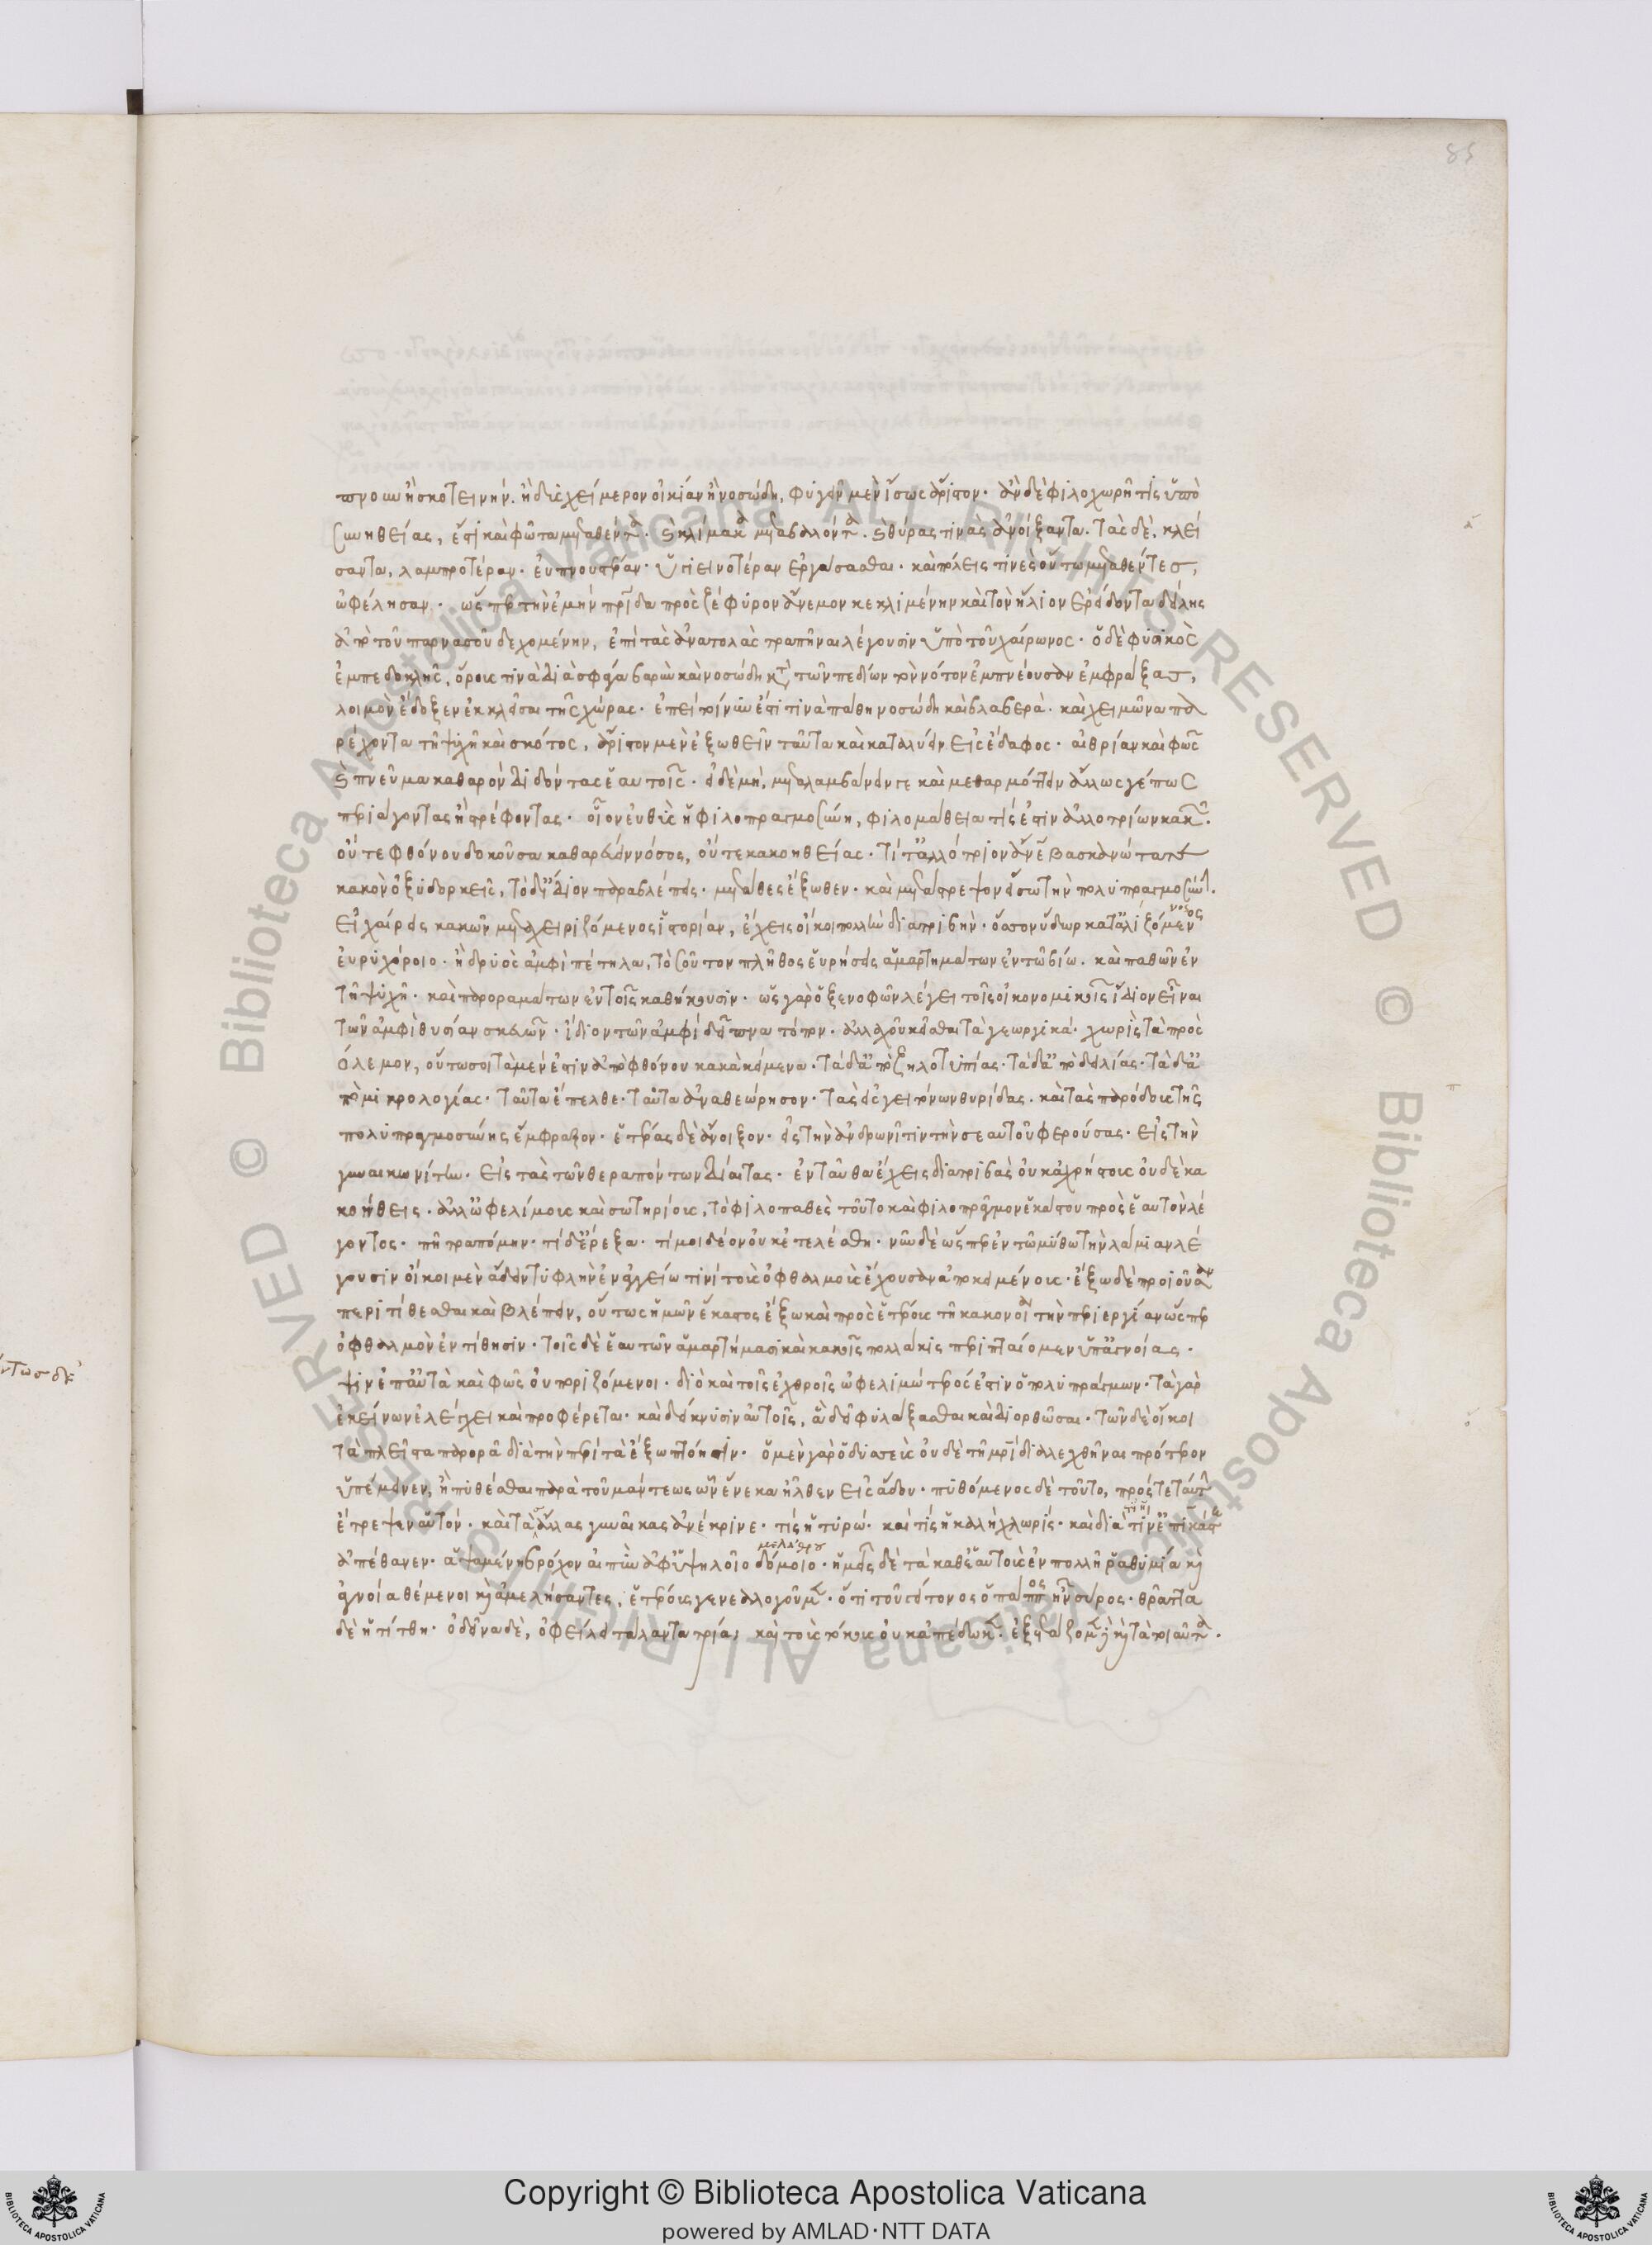 85
πνουν ἢ σκοτεινὴν. ἢ δυσχείμερον οἰκίαν ἢ νοσώδη, φυγεῖν μὲν ἴσως ἄριστον· ἂν δὲ φιλοχωρῇ τίς ὑπὸ
συνηθείας, ἔστι καὶ φῶτα μεταθέντα. καὶ κλίμακα μεταβαλόντα. καὶ θύρας τινὰς ἀνοίξαντα. τὰς δὲ, κλεί
σαντα, λαμπροτέραν· εὐπνουστέραν· ὑγιεινοτέραν ἐργάσασθαι· καὶ πόλεις τινὲς οὕτω μεταθέντες,
ὠφέλησαν· ὥσπερ τὴν ἐμὴν πατρίδα πρὸς ζέφυρον ἄνεμον κεκλιμένην καὶ τὸν ἥλιον ἐρείδοντα δείλης
ἀπὸ τοῦ παρνασοῦ δεχομένην, ἐπὶ τὰς ἀνατολὰς τραπῆναι λέγουσιν ὑπὸ τοῦ χαίρωνος· ὁ δὲ φυσικὸς
ἐμπεδοκλῆς, ὄρους τινὰ διασφάγα βαρὺν καὶ νοσώδη κατὰ τῶν πεδίων τὸν νότον ἐμπνέουσαν ἐμφράξας,
λοιμὸν ἔδοξεν ἐκκλεῖσαι τῆς χώρας· ἐπεὶ τοίνυν ἐστί τινὰ πάθη νοσώδη καὶ βλαβερὰ· καὶ χειμῶνα πα
ρέχοντα τῇ ψυχῇ καὶ σκότος, ἄριστον μὲν ἐξωθεῖν ταῦτα καὶ καταλύειν εἰς ἔδαφος· αἰθρίαν καὶ φῶς
καὶ πνεῦμα καθαρὸν διδόντας ἑαυτοῖς· εἰ δὲ μή, μεταλαμβάνειν γε καὶ μεθαρμόττειν ἄλλως γέ πως
περιάγοντας ἢ στρέφοντας· οἷον εὐθὺς ἡ φιλοπραγμοσύνη, φιλομάθεια τίς ἐστιν ἀλλοτρίων κακῶν·
οὔτε φθόνου δοκοῦσα καθαρεύειν νόσος, οὔτε κακοηθείας· τί τἀλλότριον ἄνθρωπε βασκανώτατε
κακὸν ὀξυδορκεῖς, τὸ δ' ἴδιον παραβλέπεις· μετάθες ἔξωθεν· καὶ μετάστρεψον εἴσω τὴν πολυπραγμοσύνην·
εἰ χαίρεις κακῶν μεταχειριζόμενος ἱστορίαν, ἔχεις οἴκοι πολλὴν διατριβήν· ὅσσον ὕδωρ κατ' ἀλιζόμενος
εὐρυχόροιο· ἢ δρυὸς ἀμφὶ πέτηλα, τοσοῦτον πλῆθος εὑρήσεις ἁμαρτημάτων ἐν τῷ βίω. καὶ παθῶν ἐν
τῇ ψυχῇ· καὶ παροραμάτων ἐν τοῖς καθήκουσιν· ὡς γὰρ ὁ ξενοφῶν λέγει τοῖς οἰκονομικοῖς ἴδιον εἶναι
τῶν ἀμφὶ θυσίαν σκευῶν· ἴδιον τῶν ἀμφὶ δεῖπνα τόπον· ἀλλαχοῦ κεῖσθαι τὰ γεωργικά· χωρὶς τὰ πρὸς
όλεμον, οὕτω σοι τὰ μέν ἐστιν ἀπὸ φθόνου κακὰ κείμενα· τὰ δ' ἀπὸ ζηλοτυπίας· τὰ δ' ἀπὸ δειλίας· τὰ δ' ἀ
πὸ μικρολογίας· ταῦτα ἔπελθε· ταῦτα ἀναθεώρησον· τὰς εἰς γειτόνων θυρίδας· καὶ τὰς παρόδους τῆς
πολυπραγμοσύνης ἔμφραξον· ἑτέρας δὲ ἄνοιξον· εἰς τὴν ἀνδρωνῖτιν τὴν σεαυτοῦ φερούσας· εἰς τὴν
γυναικωνίτιν· εἰς τὰς τῶν θεραπόντων διαίτας· ἐνταῦθα ἔχεις διατριβὰς οὐκ ἀχρήστους οὐδὲ κα
κοήθεις· ἀλλ' ὠφελίμους καὶ σωτηρίους, τὸ φιλοπαθὲς τοῦτο καὶ φιλόπραγμον ἑκάστου πρὸς ἑαυτὸν λέ
γοντος· πῆ τραπόμην· τί δ' ἔρεξα· τί μοι δέον οὐκ ἐτελέσθη· νῦν δὲ ὥσπερ ἐν τῷ μύθω τὴν λάμιαν λέ
γουσιν οἴκοι μὲν εὕδειν τυφλὴν ἐν ἀγγείω τινὶ τοὺς ὀφθαλμοὺς ἔχουσαν ἀποκειμένους· ἔξω δὲ προϊοῦσαν
περιτίθεσθαι καὶ βλέπειν, οὕτως ἡμῶν ἕκαστος ἔξω καὶ πρὸς ἑτέρους τῇ κακονοίᾳ τὴν περιεργίαν ὥσπερ
ὀφθαλμὸν ἐντίθησιν· τοῖς δὲ ἑαυτῶν ἁμαρτήμασι καὶ κακοῖς πολλάκις περιπταίομεν ὑπ' ἀγνοίας·
ψιν ἐπ' αὐτὰ καὶ φῶς οὐ ποριζόμενοι· διὸ καὶ τοῖς ἐχθροῖς ὠφελιμώτερός ἐστιν ὁ πολυπράγμων· τὰ γὰρ
ἐκείνων ἐλέγχει καὶ προφέρεται· καὶ δείκνυσιν αὐτοῖς, ἃ δεῖ φυλάξασθαι καὶ διορθῶσαι· τῶν δὲ οἴκοι
τὰ πλεῖστα παρορᾷ διὰ τὴν περὶ τὰ ἔξω πτόησιν· ὁ μὲν γὰρ ὀδυσσεὺς οὐδὲ τῇ μητρὶ διαλεχθῆναι πρότερον
ὑπέμεινεν, ἢ πυθέσθαι παρὰ τοῦ μάντεως ὧν ἕνεκα ἦλθεν εἰς ἅδου· πυθόμενος δὲ τοῦτο, πρός τε ταύτην
ἔτρεψεν αὑτόν· καὶ τὰς ἄλλας γυναῖκας ἀνέκρινε· τίς ἡ τυρώ· καὶ τίς ἡ καλὴ χλωρίς· καὶ διὰ τί ἡ ἐπικάστη
ἀπέθανεν· ἁψαμένη βρόχον αἰπὺν ἀφ' ὑψηλοῖο δόμοιο μελάθρου· ἡμεῖς δὲ τὰ καθ' ἑαυτοὺς ἐν πολλῇ ῥαθυμίᾳ καὶ
ἀγνοίᾳ θέμενοι καὶ ἀμελήσαντες, ἑτέρους γενεαλογοῦμεν· ὅτι τοῦ γείτονος ὁ πάππος ἦν σύρος· θρᾷττα
δὲ ἡ τίτθη· ὁ δεῖνα δὲ, ὀφείλει τάλαντα τρία, καὶ τοὺς τόκους οὐκ ἀπέδωκεν· ἐξετάζομεν καὶ τὰ τοιαῦτα.
Copyright © Biblioteca Apostolica Vaticana
powered by AMLAD·NTT DATA